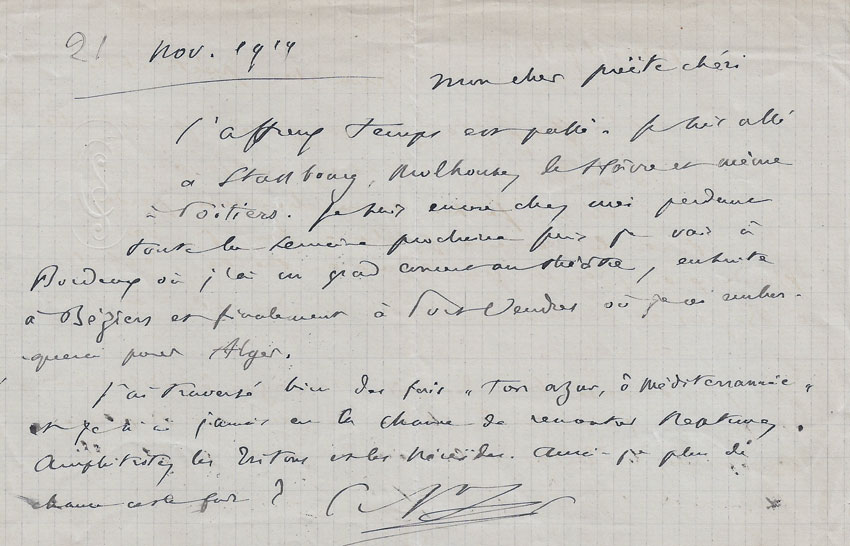 21 nov. 1919
mon cher poète chéri
l'affreux temps est passé. je suis allé
à Strasbourg, Mulhouse, le Havre et même
à Poitiers. je suis encore chez moi pendant
toute la semaine prochaine puis je vais à
Bordeaux où j'ai un grand concert au théâtre, ensuite
à Béziers et finalement à Port Vendres où je
querai pour Alger.
j'ai traversé bien des fois "ton azur, ô Méditerranée"
et je n'ai jamais eu la chance de rencontrer Neptune,
Amphitrite, les Tritons et les Néréides. aurai-je plus de
chance cette fois ?